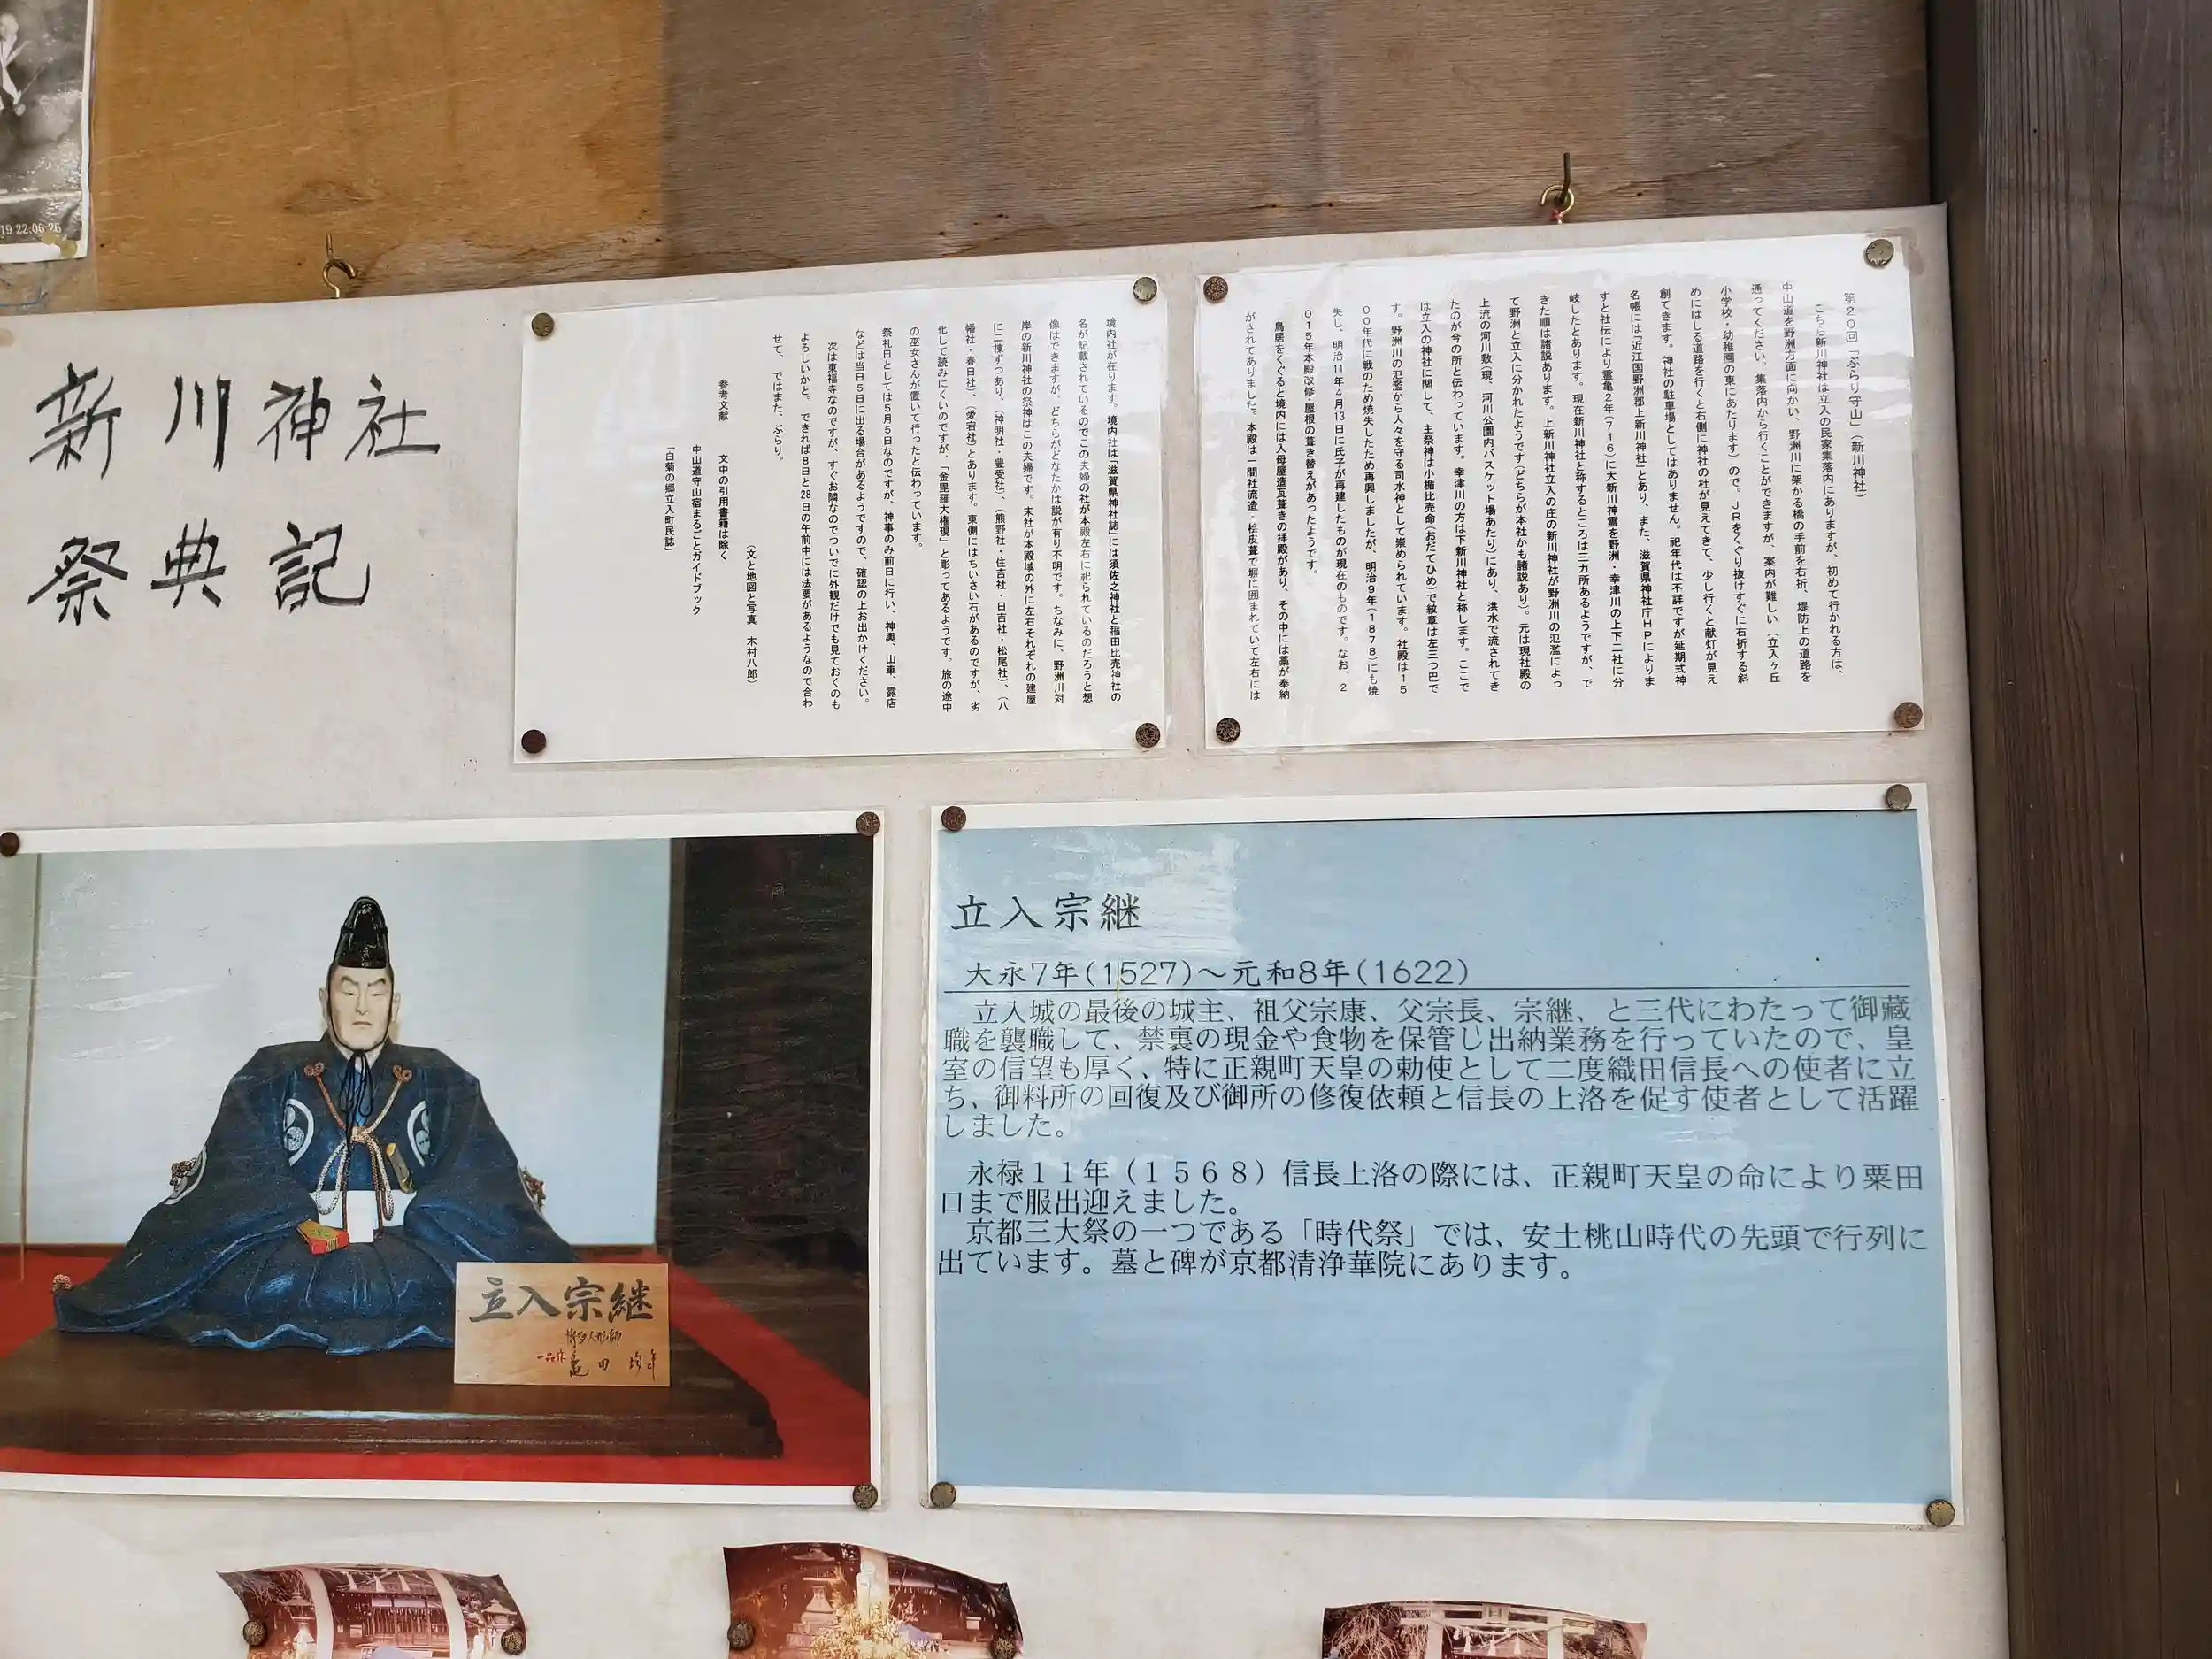 19 22:06
新川神社
祭典記
第20回「ぶらり守山」（新川神社）
こちら新川神社は立入の民家集落内にありますが、初めて行かれる方は、
中山道を野洲方面に向かい、野洲川に架かる橋の手前を右折、堤防上の道路を
通ってください。集落内から行くことができますが、案内が難しい（立入ヶ丘
小学校・幼稚園の東にあたります）ので。ＪＲをくぐり抜けすぐに右折する斜
めにはしる道路を行くと右側に神社の杜が見えてきて、少し行くと献灯が見え
創てきます。神社の駐車場としてはありません。祀年代は不詳ですが延期式神
名帳には「近江国野洲郡上新川神社」とあり、また、滋賀県神社庁ＨＰによりま
すと社伝により霊亀2年（716）に大新川神霊を野洲・幸津川の上下二社に分
岐したとあります。現在新川神社と称するところは三カ所あるようですが、で
きた順は諸説あります。上新川神社立入の庄の新川神社が野洲川の氾濫によっ
て野洲と立入に分かれたようです（どちらが本社かも諸説あり）。元は現社殿の
上流の河川敷（現、河川公園内バスケット場あたり）にあり、洪水で流されてき
たのが今の所と伝わっています。幸津川の方は下新川神社と称します。ここで
は立入の神社に関して、主祭神は小楯比売命（おだてひめ）で紋章は左三つ巴で
す。野洲川の氾濫から人々を守る司水神として崇められています。社殿は15
00年代に戦のため焼失したため再興しましたが、明治9年（1878）にも焼
失し、明治11年4月13日に氏子が再建したものが現在のものです。なお、2
015年本殿改修・屋根の葺き替えがあったようです。
鳥居をくぐると境内には入母屋造瓦葺きの拝殿があり、その中には藁が奉納
がされてありました。本殿は一間社流造・桧皮葺で塀に囲まれていて左右には
境内社が在ります。境内社は「滋賀県神社誌」には須佐之神社と稲田比売神社の
名が記載されているのでこの夫婦の社が本殿左右に祀られているのだろうと想
像はできますが、どちらがどなたかは説が有り不明です。ちなみに、野洲川対
岸の新川神社の祭神はこの夫婦です。末社が本殿域の外に左右それぞれの建屋
に二棟ずつあり、（神明社・豊受社）、（熊野社・住吉社・日吉社・松尾社）、（八
幡社・春日社）、（愛宕社）とあります。東側にはちいさい石があるのですが、劣
化して読みにくいのですが、「金毘羅大権現」と彫ってあるようです。旅の途中
の巫女さんが置いて行ったと伝わっています。
祭礼日としては5月5日なのですが、神事のみ前日に行い、神輿、山車、露店
などは当日5日に出る場合があるようですので、確認の上お出かけください。
次は東福寺なのですが、すぐお隣なのでついでに外観だけでも見ておくのも
よろしいかと。できれば8日と28日の午前中には法要があるようなので合わ
せて。ではまた、ぶらり。
（文と地図と写真　木村八郎）
参考文献　文中の引用書籍は除く
中山道守山宿まるごとガイドブック
「白菊の郷立入町民誌」
立入宗継
博多人形師
一品作 亀田 均
立入宗継
大永7年(1527)～元和8年(1622)
立入城の最後の城主、祖父宗康、父宗長、宗継、と三代にわたって御藏
職を襲職して、禁裏の現金や食物を保管し出納業務を行っていたので、皇
室の信望も厚く、特に正親町天皇の勅使として二度織田信長への使者に立
ち、御料所の回復及び御所の修復依頼と信長の上洛を促す使者として活躍
しました。
永禄１１年（１５６８）信長上洛の際には、正親町天皇の命により粟田
口まで服出迎えました。
京都三大祭の一つである「時代祭」では、安土桃山時代の先頭で行列に
出ています。墓と碑が京都清浄華院にあります。